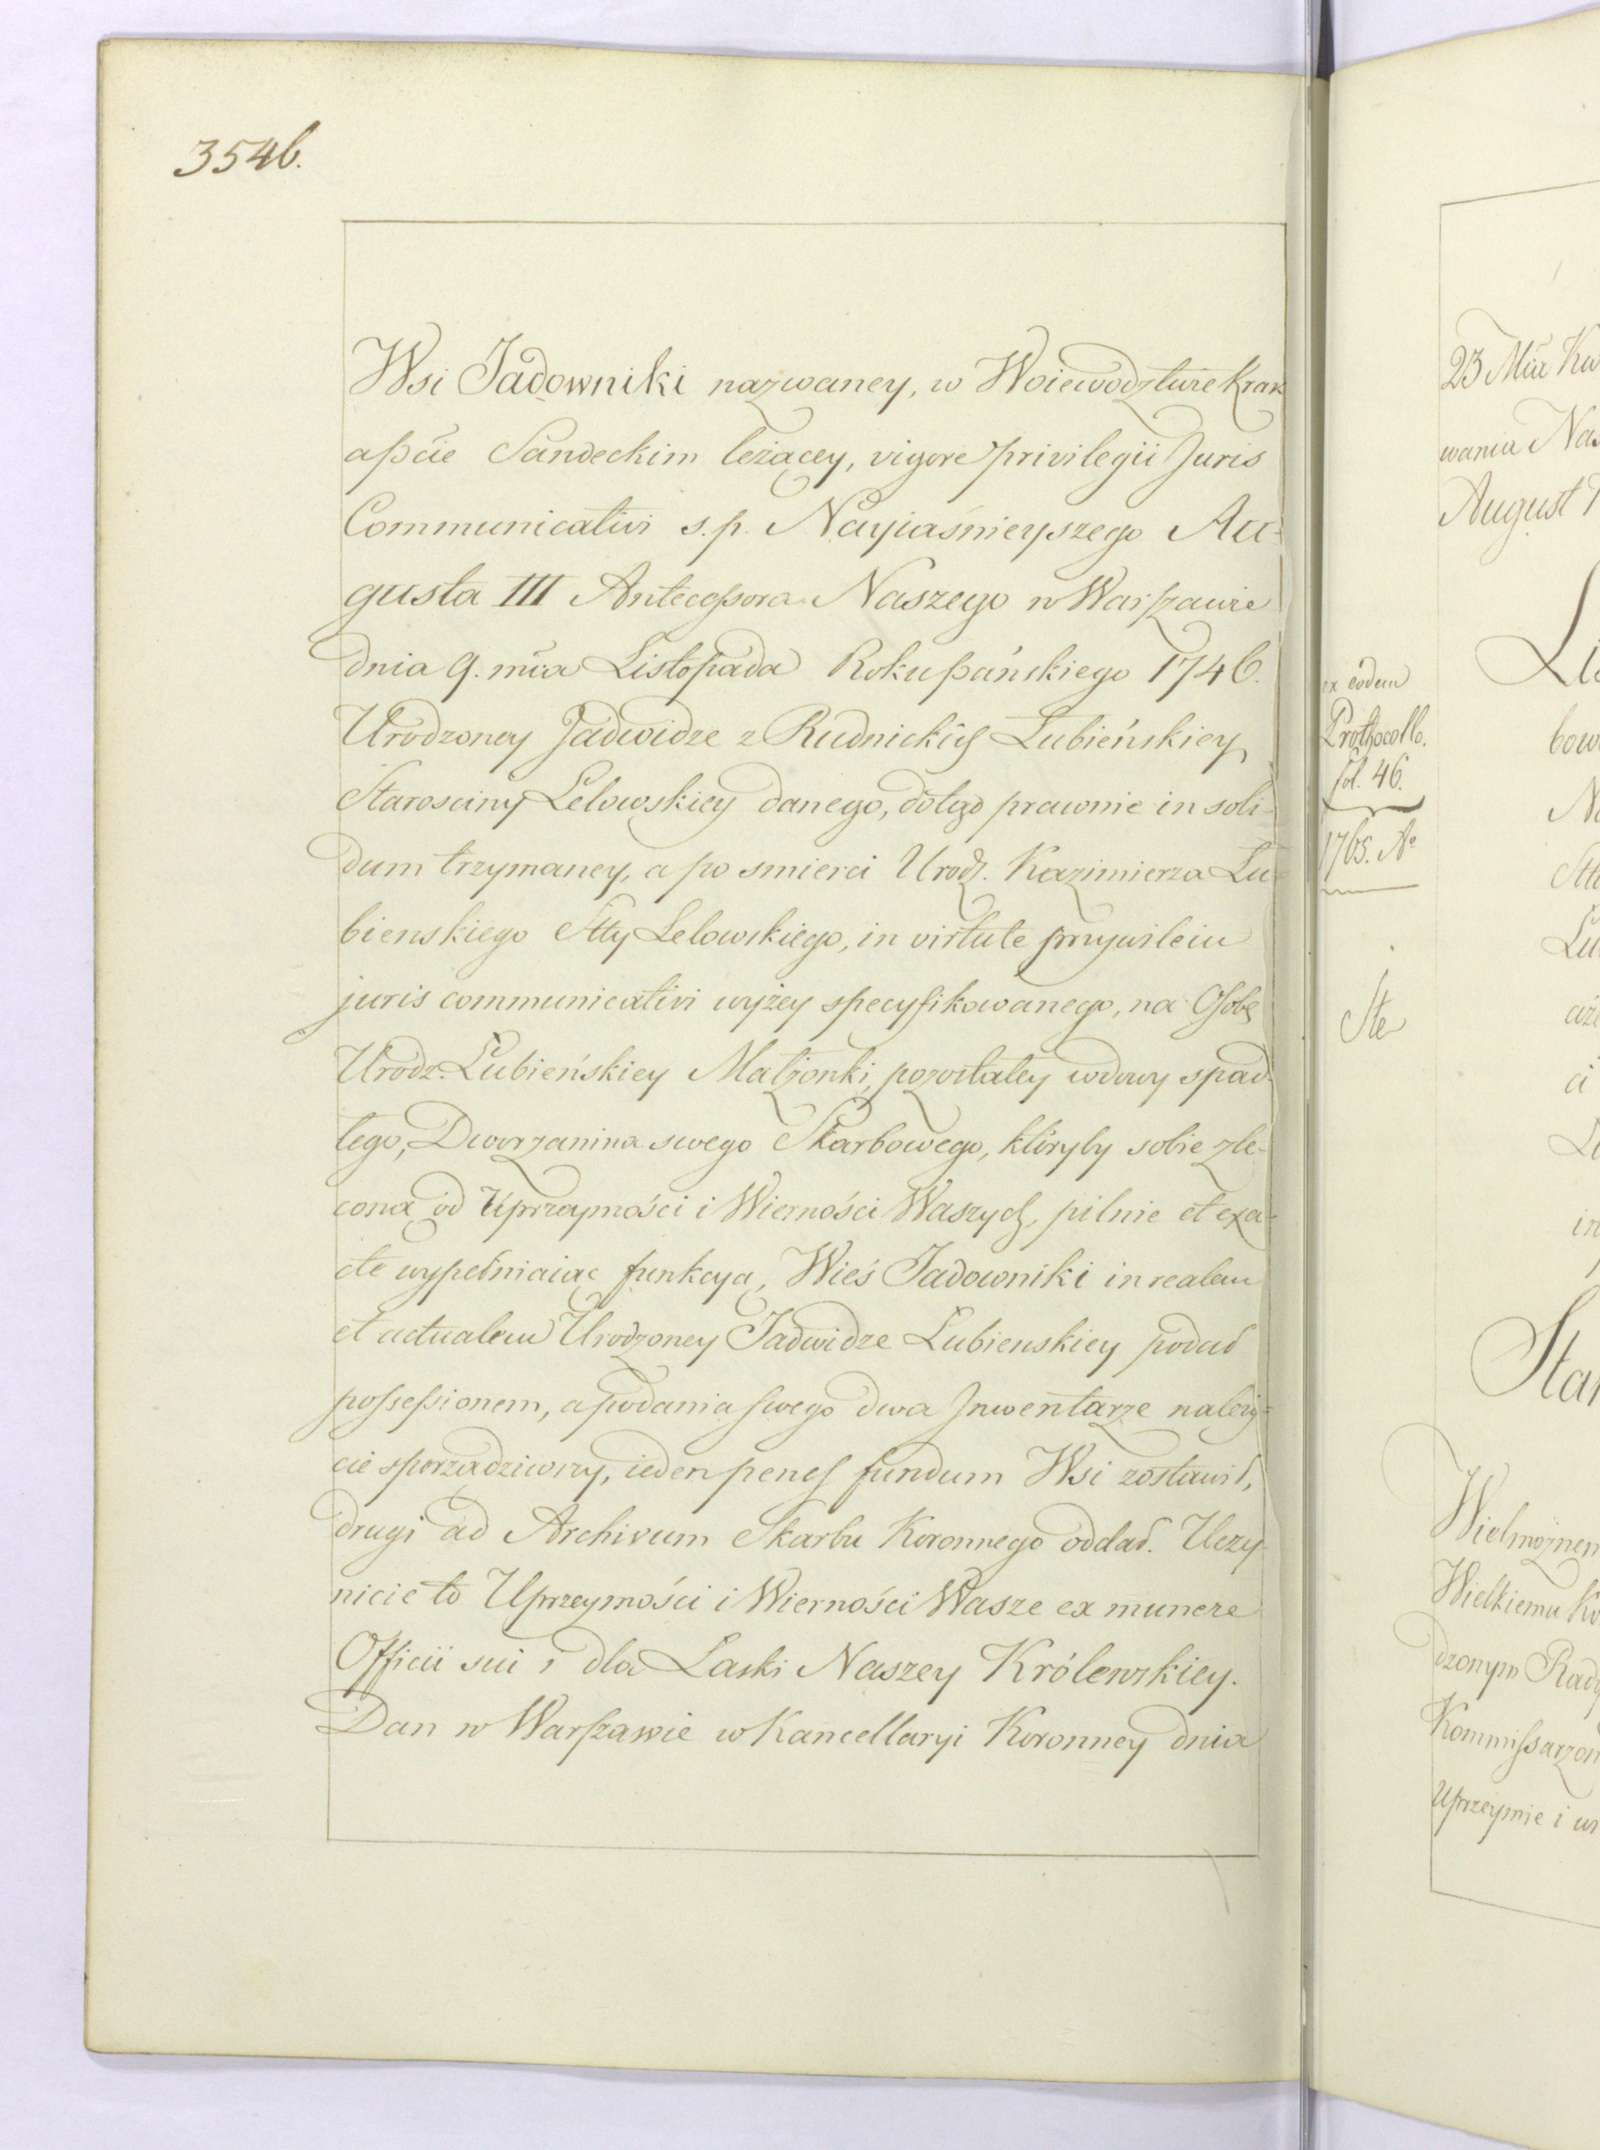 3546.
Wsi Jadowniki nazwaney, w Woiewodztwie Krak
a pcie Sandeckim leżącey, vigore privilegii Juris
Communicativi s.p. Nayiaśnieyszego Au-
gusta III Antecessora Naszego w Warszawie
dnia 9. mca Listopada Roku pańskiego 1746.
Urodzoney Jadwidze z Rudnickich Lubieńskiey
Starosciny Lelowskiey danego, dotąd prawnie in soli-
dum trzymaney, a po smierci Urodz. Kazimierza Lu-
bienskiego Stty Lelowskiego, in virtute przywileiu
juris communicativi wyżey specyfikowanego, na Osobę
Urodz. Lubieńskiey Małżonki, pozostałey wdowy spad-
łego, Dworzanina swego Skarbowego, któryby sobie zle-
coną od Uprzeymości i Wierności Waszych, pilnie et exa-
cte wypełniaiąc funkcyą, Wieś Jadowniki in realem
et actualem Urodzoney Jadwidze Lubienskiey podał
possessionem, a podania swego dwa Inwentarze należy-
cie sporządziwszy, ieden penes fundum Wsi zostawił,
drugi ad Archivum Skarbu Koronnego oddał. Uczy-
nicie to Uprzeymości i Wierności Wasze ex munere
Officii sui i dla Łaski Naszey Królewskiey.
Dan w Warszawie w Kancellaryi Koronney dnia
ex eodem
Prothocollo.
fol. 46.
1765. Ao
Ste
23 Mca Kw
wania Na
August
Li
bow
Stt
Lu
ci
in
Star
Wielmożnem
Wielkiemu Ko
dzonym Rady
Kommissarzom
Uprzeymie i w